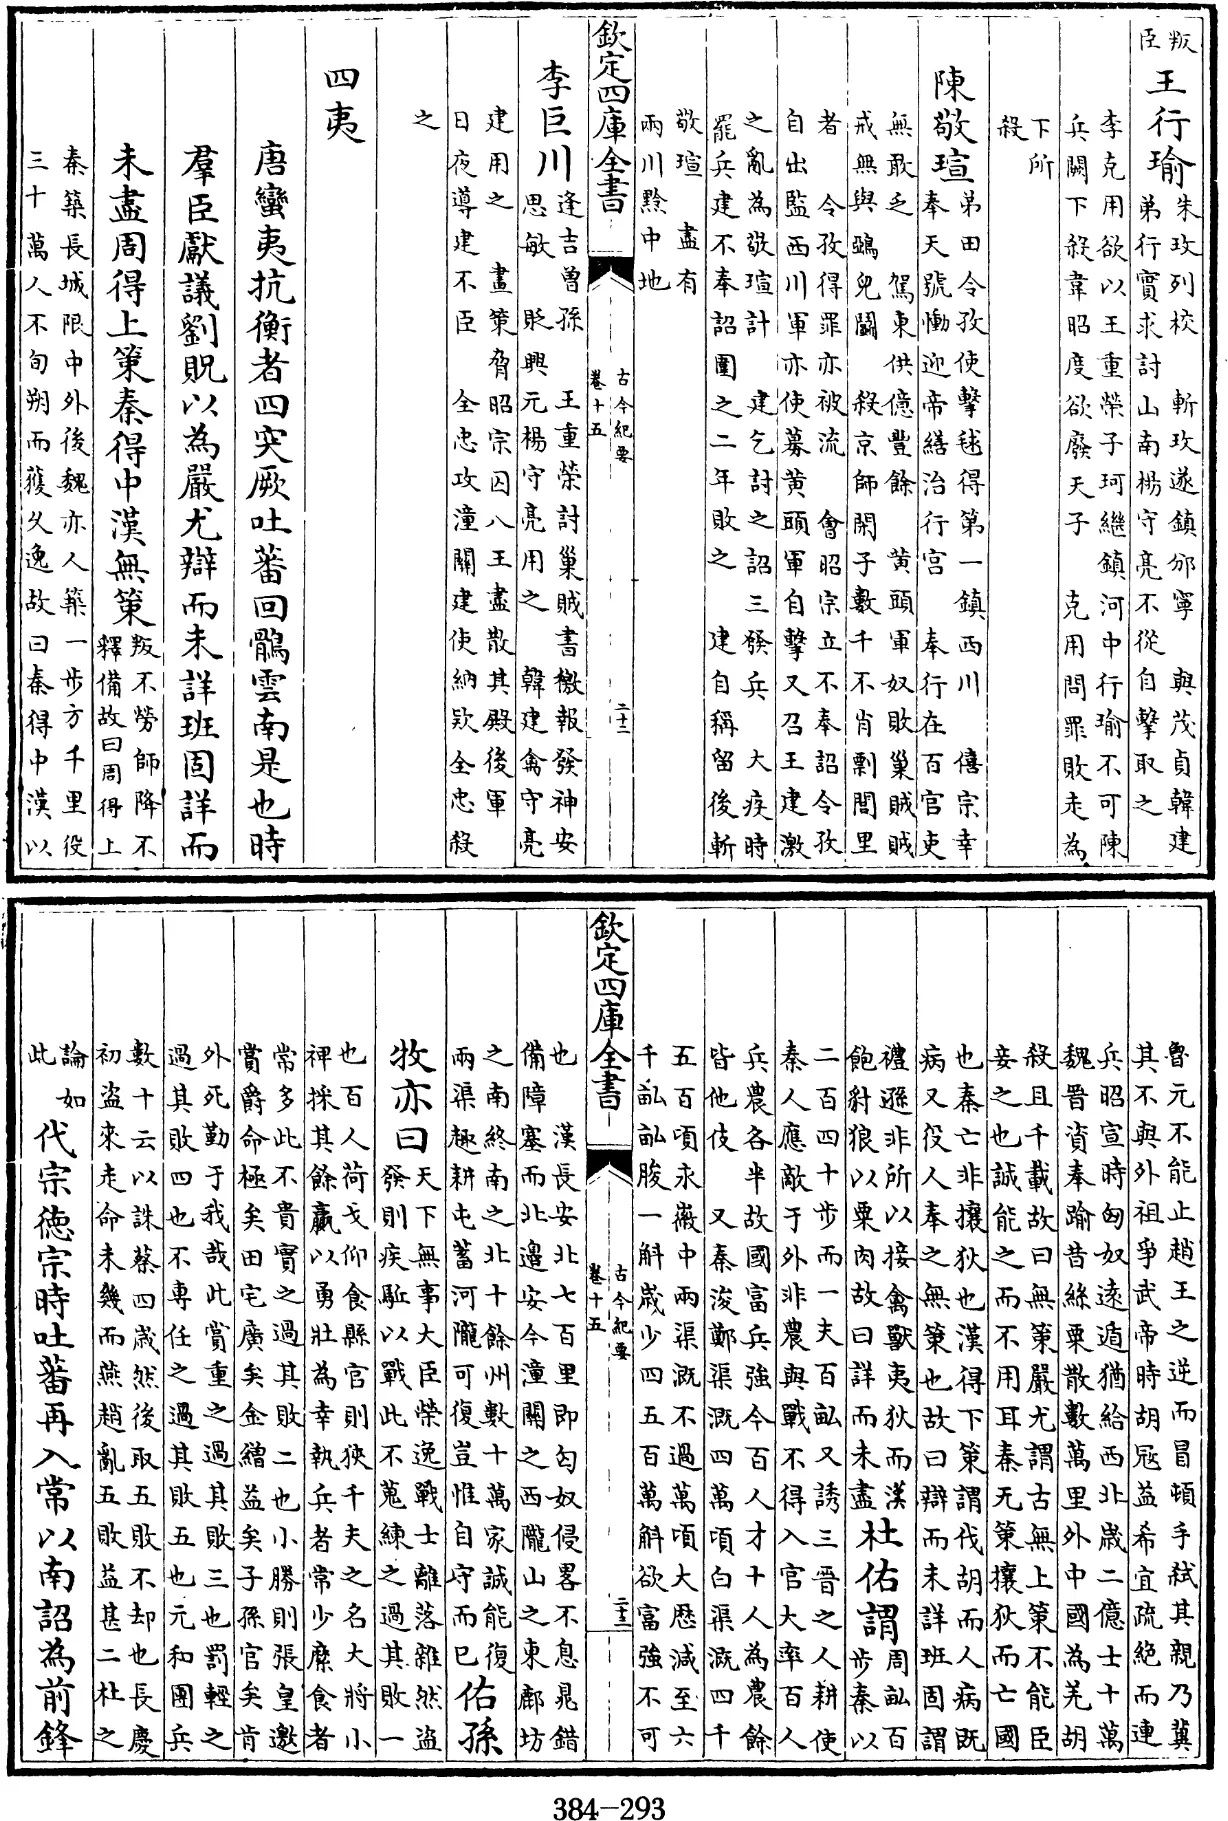 叛
臣
王行瑜
朱玫列校　斬玫遂鎮邠寧　與茂貞韓建
弟行實求討山南楊守亮不從自擊取之
李克用欲以王重榮子珂繼鎮河中行瑜不可陳
兵闕下殺韋昭度欲廢天子　克用問罪敗走為
下所
殺
陳敬瑄
弟田令孜使擊毬得第一鎮西川　僖宗幸
奉天號慟迎帝繕治行宮　奉行在百官吏
無敢乏　駕東供億豐餘　黄頭軍奴敗巢賊賊
戒無與鵶兒鬭　殺京師閑子數千不肖剽閭里
者　令孜得罪亦被流　會昭宗立不奉詔令孜
自出監西川軍亦使募黄頭軍自擊又召王建激
之亂為敬瑄計　建乞討之詔三發兵　大疫時
罷兵建不奉詔圍之二年敗之　建自稱留後斬
敬瑄　盡有
兩川黔中地
欽定四庫全書
古今紀要
卷十五
二十二
李巨川
逢吉曾孫　王重榮討巢賊書檄報發神安
思敏　貶興元楊守亮用之　韓建禽守亮
建用之　畫策脅昭宗囚八王盡散其殿後軍
日夜導建不臣　全忠攻潼關建使納欵全忠殺
之
四夷
唐蠻夷抗衡者四突厥吐蕃回鶻雲南是也時
羣臣獻議劉貺以為嚴尤辯而未詳班固詳而
未盡周得上策秦得中漢無策
叛不勞師降不
釋備故曰周得上
秦築長城限中外後魏亦人築一步方千里役
三十萬人不旬朔而獲久逸故曰秦得中漢以
魯元不能止趙王之逆而冒頓手弑其親乃冀
其不與外祖爭武帝時胡宼益希宜疏絶而連
兵昭宣時匈奴遠遁猶給西北歲二億士十萬
魏晉資奉踰昔絲粟散數萬里外中國為羌胡
殺且千載故曰無策嚴尤謂古無上策不能臣
妾之也誠能之而不用耳秦无策攘狄而亡國
也秦亡非攘狄也漢得下策謂伐胡而人病既
病又役人奉之無策也故曰辯而未詳班固謂
禮遜非所以接禽獸夷狄而漢
飽豺狼以粟肉故曰詳而未盡
杜佑謂
周畝百
步秦以
二百四十步而一夫百畝又誘三晉之人耕使
秦人應敵于外非農與戰不得入官大率百人
兵農各半故國富兵強今百人才十人為農餘
皆他伎　又秦浚鄭渠溉四萬頃白渠溉四千
五百頃永徽中兩渠溉不過萬頃大厯減至六
千畝畝朘一斛歲少四五百萬斛欲富強不可
欽定四庫全書
古今紀要
卷十五
二十三
也　漢長安北七百里即匈奴侵畧不息晁錯
備障塞而北邉安今潼關之西隴山之東鄜坊
之南終南之北十餘州數十萬家誠能復
兩渠趣耕屯蓄河隴可復豈惟自守而已
佑孫
牧亦曰
天下無事大臣榮逸戰士離落雜然盜
發則疾驅以戰此不蒐練之過其敗一
也百人荷戈仰食縣官則狹千夫之名大將小
裨採其餘羸以勇壯為幸執兵者常少糜食者
常多此不貴實之過其敗二也小勝則張皇邀
賞爵命極矣田宅廣矣金繒益矣子孫官矣肯
外死勤于我哉此賞重之過其敗三也罰輕之
過其敗四也不専任之過其敗五也元和團兵
數十云以誅蔡四歲然後取五敗不却也長慶
初盜來走命未幾而燕趙亂五敗益甚二杜之
論如
此
代宗德宗時吐蕃再入常以南詔為前鋒
384-293